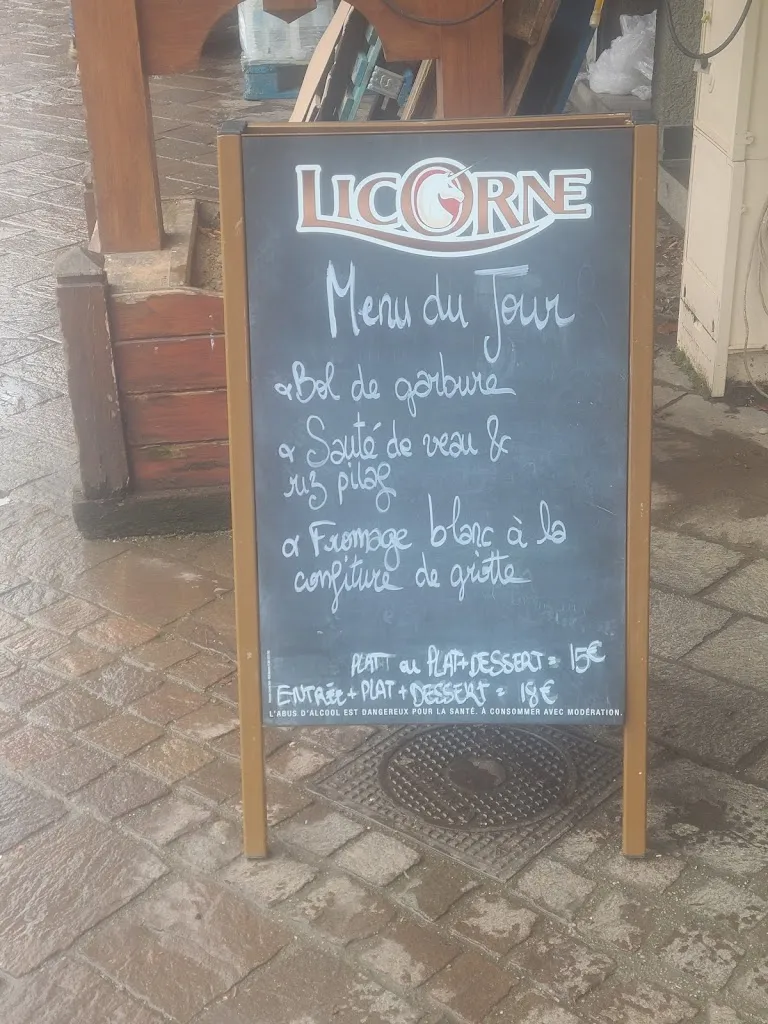 LICORNE
Menu du Jour
Bol de garbure
Sauté de veau &
riz pilaf
Fromage blanc à la
confiture de griotte
PLAT ou PLAT+DESSERT = 15€
ENTRÉE + PLAT + DESSERT = 18€
L'ABUS D'ALCOOL EST DANGEREUX POUR LA SANTÉ. À CONSOMMER AVEC MODÉRATION.